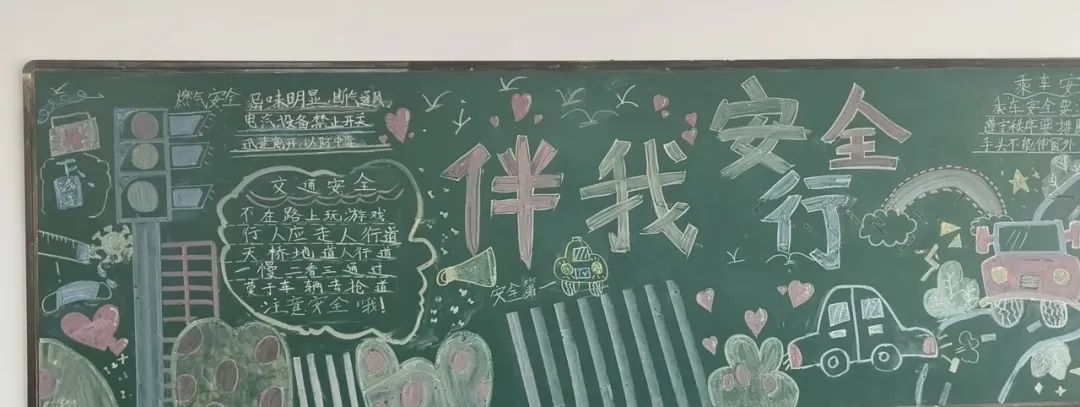 燃气安全
异味明显,断气通风
电汽设备禁止开关
迅速离开,以防中毒
交通安全
不在路上玩游戏
行人应走人行道
天桥地道人行道
一慢二看三通过
莫与车辆去抢道
注意安全哦!
安全
伴我行
安全第一
乘车安
乘车安全要
遵守秩序要排
手头不能伸窗外